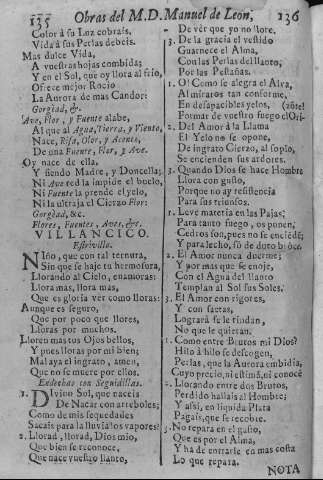 135 Obras del M.D. Manuel de Leon, 136
Color à su Luz cobrais,
Vida à sus Perlas debeis.
Mas dulce Vida,
A vuestras hojas combida;
Y en el Sol, que oy llora al frio,
Ofrece mejor Rocio
La Aurora de mas Candor:
Gorgead, &c.
Ave, Flor, y Fuente alabe,
Al que al Agua, Tierra, y Viento,
Nace, Risa, Olor, y Acento,
De una Fuente, Flor, y Ave.
Oy nace de ella.
Y siendo Madre, y Doncella;
Ni Ave red la impide el buelo,
Ni Fuente la prende el yelo,
Ni la ultraja el Cierzo Flor:
Gorgead, &c.
Flores, Fuentes, Aves, &c.
VILLANCICO.
Estrivillo.
Niño, que con tal ternura,
Sin que se haja tu hermosura,
Llorando al Cielo, enamoras:
Llora mas, llora mas,
Que es gloria ver como lloras:
Aunque es seguro,
Que por poco que llores,
Lloras por muchos.
Lloren mas tus Ojos bellos,
Y pues lloras por mi bien;
Mal aya el ingrato, amen,
Que no se muere por ellos.
Endechas con Seguidillas.
1. Divino Sol, que naceis
De Nacar con arreboles;
Como de mis sequedades
Sacais para la lluvia los vapores?
2. Llorad, llorad, Dios mio,
Que bien se reconoce,
Que nace vuestro llanto,
De ver que yo no llore.
3. De la gracia el vestido
Guarnece el Alma,
Con las Perlas del llanto,
Por las Pestañas.
1. O! Como se alegra el Alva,
Al miraros tan conforme,
En desapacibles yelos, (zõte!
Formar de vuestro fuego el Ori-
2. Del Amor à la Llama
El Yelo no se opone,
De ingrato Cierzo, al soplo,
Se encienden sus ardores.
3. Quando Dios se hace Hombre
Llora con gusto,
Porque no ay resistencia
Para sus triunfos.
1. Leve materia en las Pajas,
Para tanto fuego, os ponen,
Cedros son, pues no se enciẽdẽ;
Y para lecho, sõ de duro brõce.
2. El Amor nunca duerme;
Y por mas que se enoje,
Con el Agua del llanto
Templan al Sol sus Soles.
3. El Amor con rigores,
Y con saetas,
Logrará se le rindan,
No que le quieran.
1. Como entre Brutos mi Dios?
Hilo à hilo se descogen,
Perlas, que la Aurora embidia,
Cuyo precio, ni estimã, ni conocẽ
2. Llorando entre dos Brutos,
Perdido hallais al Hombre;
Y assi, en liquida Plata
Pagais, que se recobre.
3. No repara en el gasto,
Que es por el Alma,
Y ha de entrarle en mas costa
Lo que repara.
NOTA